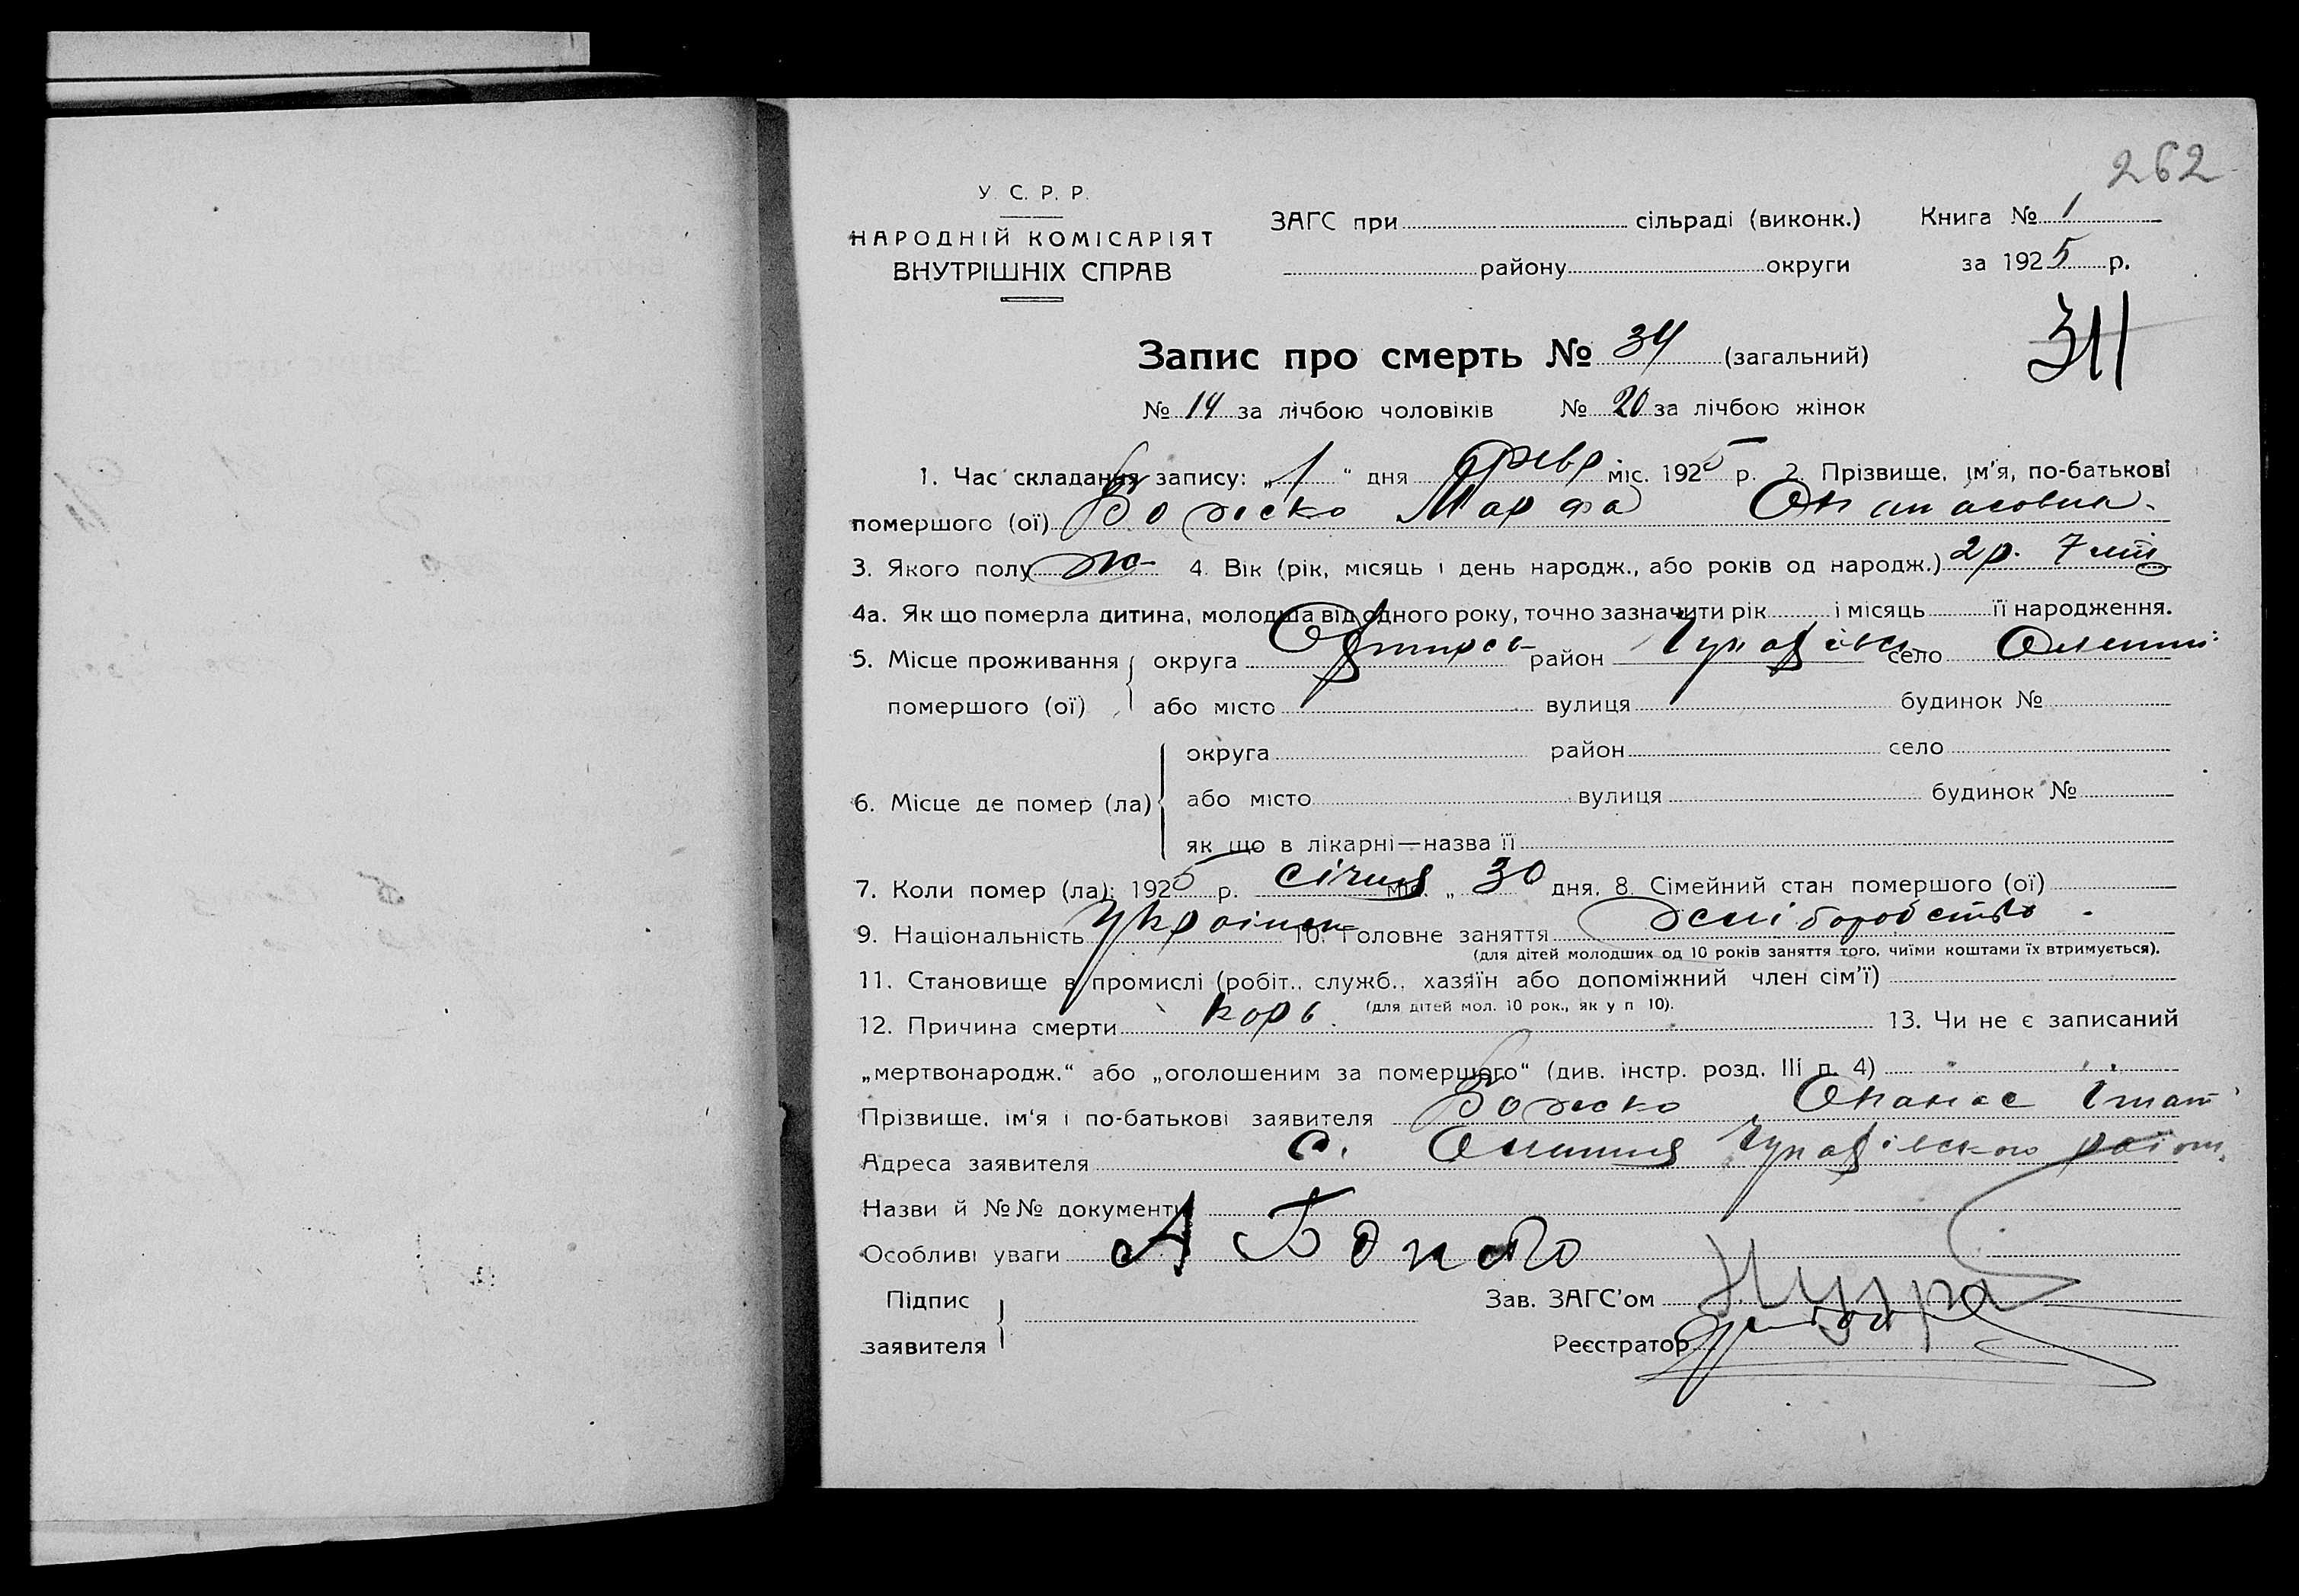 262
У. С. Р. Р.
НАРОДНІЙ КОМІСАРІЯТ
ВНУТРІШНІХ СПРАВ
ЗАГС при сільраді (виконк.)
району округи
Книга № 1
за 1925 р.
Запис про смерть № 34 (загальний)
311
№ 14 за лічбою чоловіків № 20 за лічбою жінок
1. Час складання запису: „1“ дня февр міс. 1925 р. 2. Прізвище, ім'я, по-батькові
помершого (ої) Божко Марфа
3. Якого полу ж 4. Вік (рік, місяць і день народж., або років од народж.) 2 р. 7
4а. Як що померла дитина, молодша від одного року, точно зазначити рік і місяць її народження.
5. Місце проживання округа район село
помершого (ої) або місто вулиця будинок №
округа район село
6. Місце де помер (ла) або місто вулиця будинок №
як що в лікарні—назва її
7. Коли помер (ла): 1925 р. січня міс. „ 30 дня. 8. Сімейний стан помершого (ої)
9. Національність 10. Головне заняття
(для дітей молодших од 10 років заняття того, чиїми коштами їх втримується).
11. Становище в промислі (робіт., служб., хазяїн або допоміжний член сім'ї)
(для дітей мол. 10 рок., як у п 10).
12. Причина смерти корь. 13. Чи не є записаний
„мертвонародж.“ або „оголошеним за помершого“ (див. інстр. розд. III п. 4)
Прізвище, ім'я і по-батькові заявителя Божко Опанас Гнат
Адреса заявителя с.
Назви й №№ документів
Особливі уваги А Божко
Підпис
заявителя
Зав. ЗАГС'ом
Реєстратор